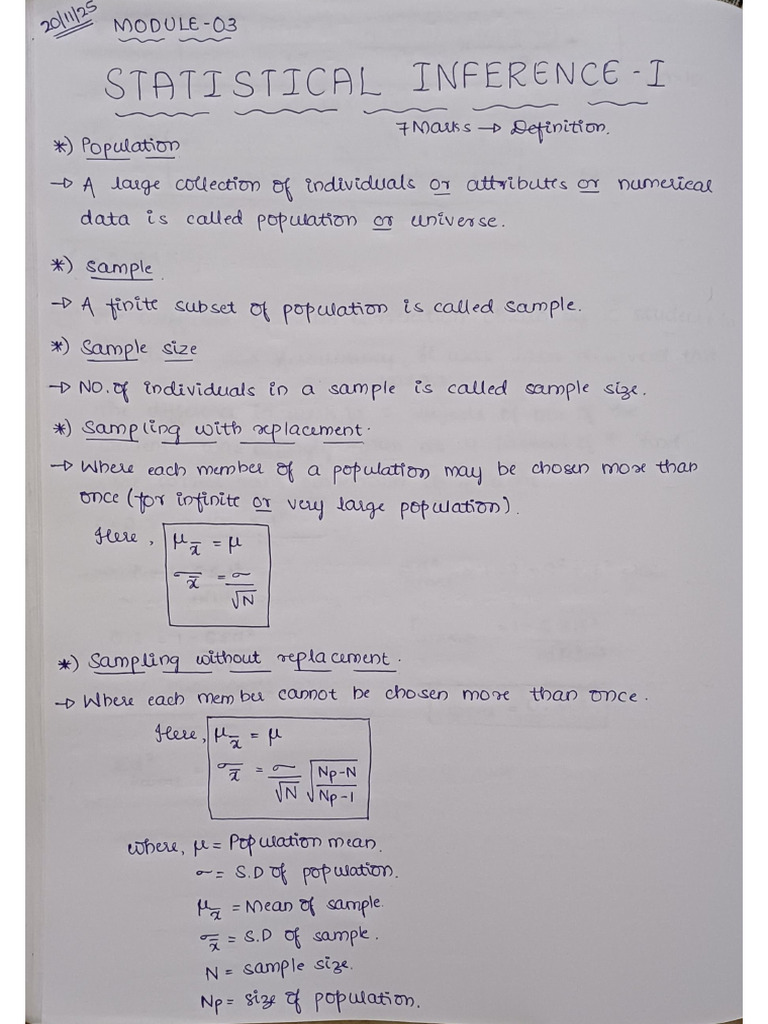 20/11/25
MODULE-03
STATISTICAL INFERENCE-I
7 Marks → Definition.
*) Population
→ A large collection of individuals or attributes or numerical
data is called population or universe.
*) Sample.
→ A finite subset of population is called sample.
*) Sample size
→ NO. of individuals in a sample is called sample size.
*) Sampling with replacement.
→ Where each member of a population may be chosen more than
once (for infinite or very large population).
Here, μx̄ = μ
σx̄ = σ/√N
*) Sampling without replacement.
→ Where each member cannot be chosen more than once.
Here, μx̄ = μ
σx̄ = σ/√N √(Np-N/Np-1)
where, μ = Population mean.
σ = S.D of population.
μx̄ = Mean of sample.
σx̄ = S.D of sample.
N = sample size.
Np = size of population.